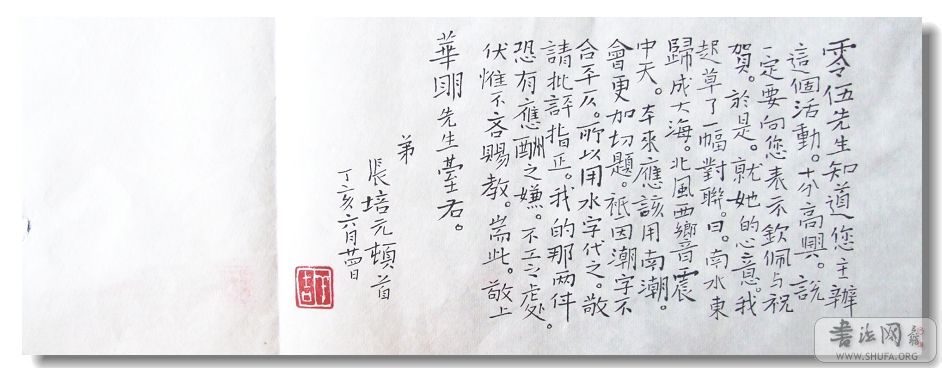 零伍先生知道您主辦
這個活動。十分高興。說
一定要向您表示欽佩与祝
賀。於是。就她的心意。我
起草了一幅對聯。曰。南水東
歸成大海。北風西響震
中天。本來應該用南潮。
會更加切題。祇因潮字不
合平仄。所以用水字代之。敬
請批評指正。我的那两件
恐有應酬之嫌。不之處。
伏惟不吝賜教。耑此。敬上
華明先生臺右。
弟
張培元頓首
丁亥六月廿四日
書法网
WWW.SHUFA.ORG